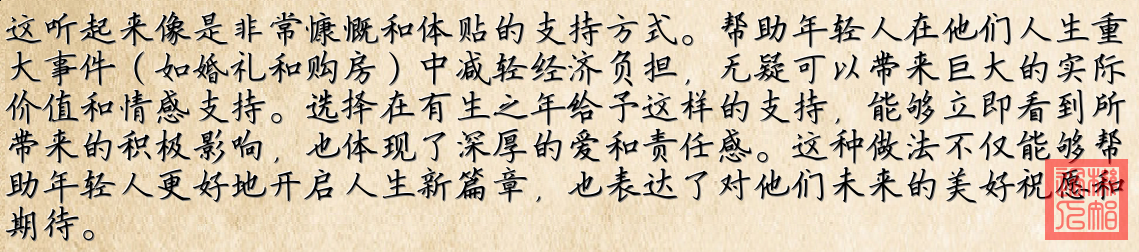 这听起来像是非常慷慨和体贴的支持方式。帮助年轻人在他们人生重
大事件（如婚礼和购房）中减轻经济负担，无疑可以带来巨大的实际
价值和情感支持。选择在有生之年给予这样的支持，能够立即看到所
带来的积极影响，也体现了深厚的爱和责任感。这种做法不仅能够帮
助年轻人更好地开启人生新篇章，也表达了对他们未来的美好祝愿和
期待。